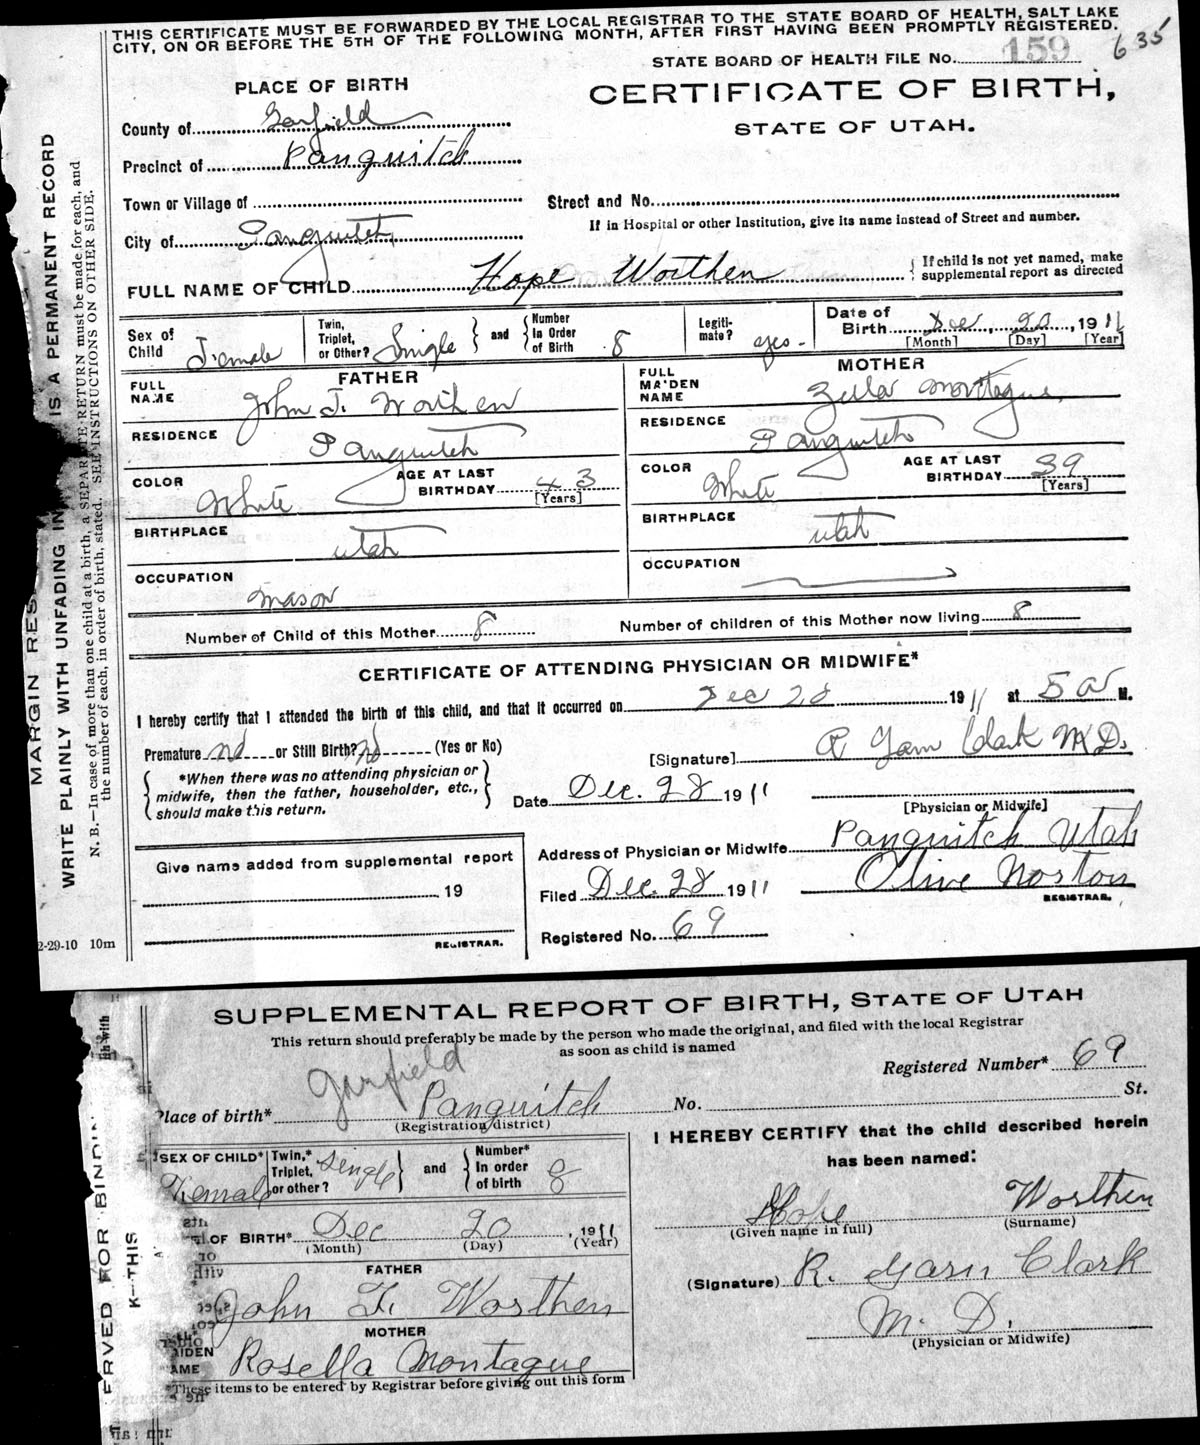 THIS CERTIFICATE MUST BE FORWARDED BY THE LOCAL REGISTRAR TO THE STATE BOARD OF HEALTH, SALT LAKE
CITY, ON OR BEFORE THE 5TH OF THE FOLLOWING MONTH, AFTER FIRST HAVING BEEN PROMPTLY REGISTERED.
635
STATE BOARD OF HEALTH FILE No. 159
PLACE OF BIRTH
CERTIFICATE OF BIRTH,
STATE OF UTAH.
County of Garfield
Precinct of Panguitch
Town or Village of
Street and No.
If in Hospital or other Institution, give its name instead of Street and number.
City of Panguitch
FULL NAME OF CHILD Hope Worthen
If child is not yet named, make
supplemental report as directed
Sex of Child Female
Twin, Triplet, or Other? Single and Number In Order of Birth 8
Legiti-mate? yes -
Date of Birth Dec, 20, 1911
[Month] [Day] [Year]
FATHER
MOTHER
FULL NAME John T. Worthen
FULL MAIDEN NAME Zella Montague
RESIDENCE Panguitch
RESIDENCE Panguitch
COLOR White AGE AT LAST BIRTHDAY 43 [Years]
COLOR White AGE AT LAST BIRTHDAY 39 [Years]
BIRTHPLACE utah
BIRTHPLACE utah
OCCUPATION mason
OCCUPATION
Number of Child of this Mother 8
Number of children of this Mother now living 8
CERTIFICATE OF ATTENDING PHYSICIAN OR MIDWIFE*
I hereby certify that I attended the birth of this child, and that it occurred on Dec 20 1911 at 5 a M.
Premature no or Still Birth? no (Yes or No)
[Signature] R Garn Clark M.D.
*When there was no attending physician or
midwife, then the father, householder, etc.,
should make this return.
Date Dec. 28 1911
[Physician or Midwife]
Give name added from supplemental report
19
REGISTRAR.
Address of Physician or Midwife Panguitch Utah
Filed Dec. 28 1911 Olive Norton
REGISTRAR.
Registered No. 69
2-29-10 10m
MARGIN RES
WRITE PLAINLY WITH UNFADING IN IS A PERMANENT RECORD
N. B.—In case of more than one child at a birth, a SEPARATE RETURN must be made for each, and
the number of each, in order of birth, stated. SEE INSTRUCTIONS ON OTHER SIDE.
SUPPLEMENTAL REPORT OF BIRTH, STATE OF UTAH
This return should preferably be made by the person who made the original, and filed with the local Registrar
as soon as child is named
Registered Number* 69
Garfield
Place of birth* Panguitch No. St.
(Registration district)
SEX OF CHILD* Female
Twin,* Triplet, or other? Single and Number* In order of birth 8
OF BIRTH* Dec 20, 1911
(Month) (Day) (Year)
FATHER
John T. Worthen
MOTHER
AIDEN
AME Rosella Montague
*These items to be entered by Registrar before giving out this form
I HEREBY CERTIFY that the child described herein
has been named:
Hope Worthen
(Given name in full) (Surname)
(Signature) R. Garn Clark
M. D.
(Physician or Midwife)
ERVED FOR BINDIN
K—THIS